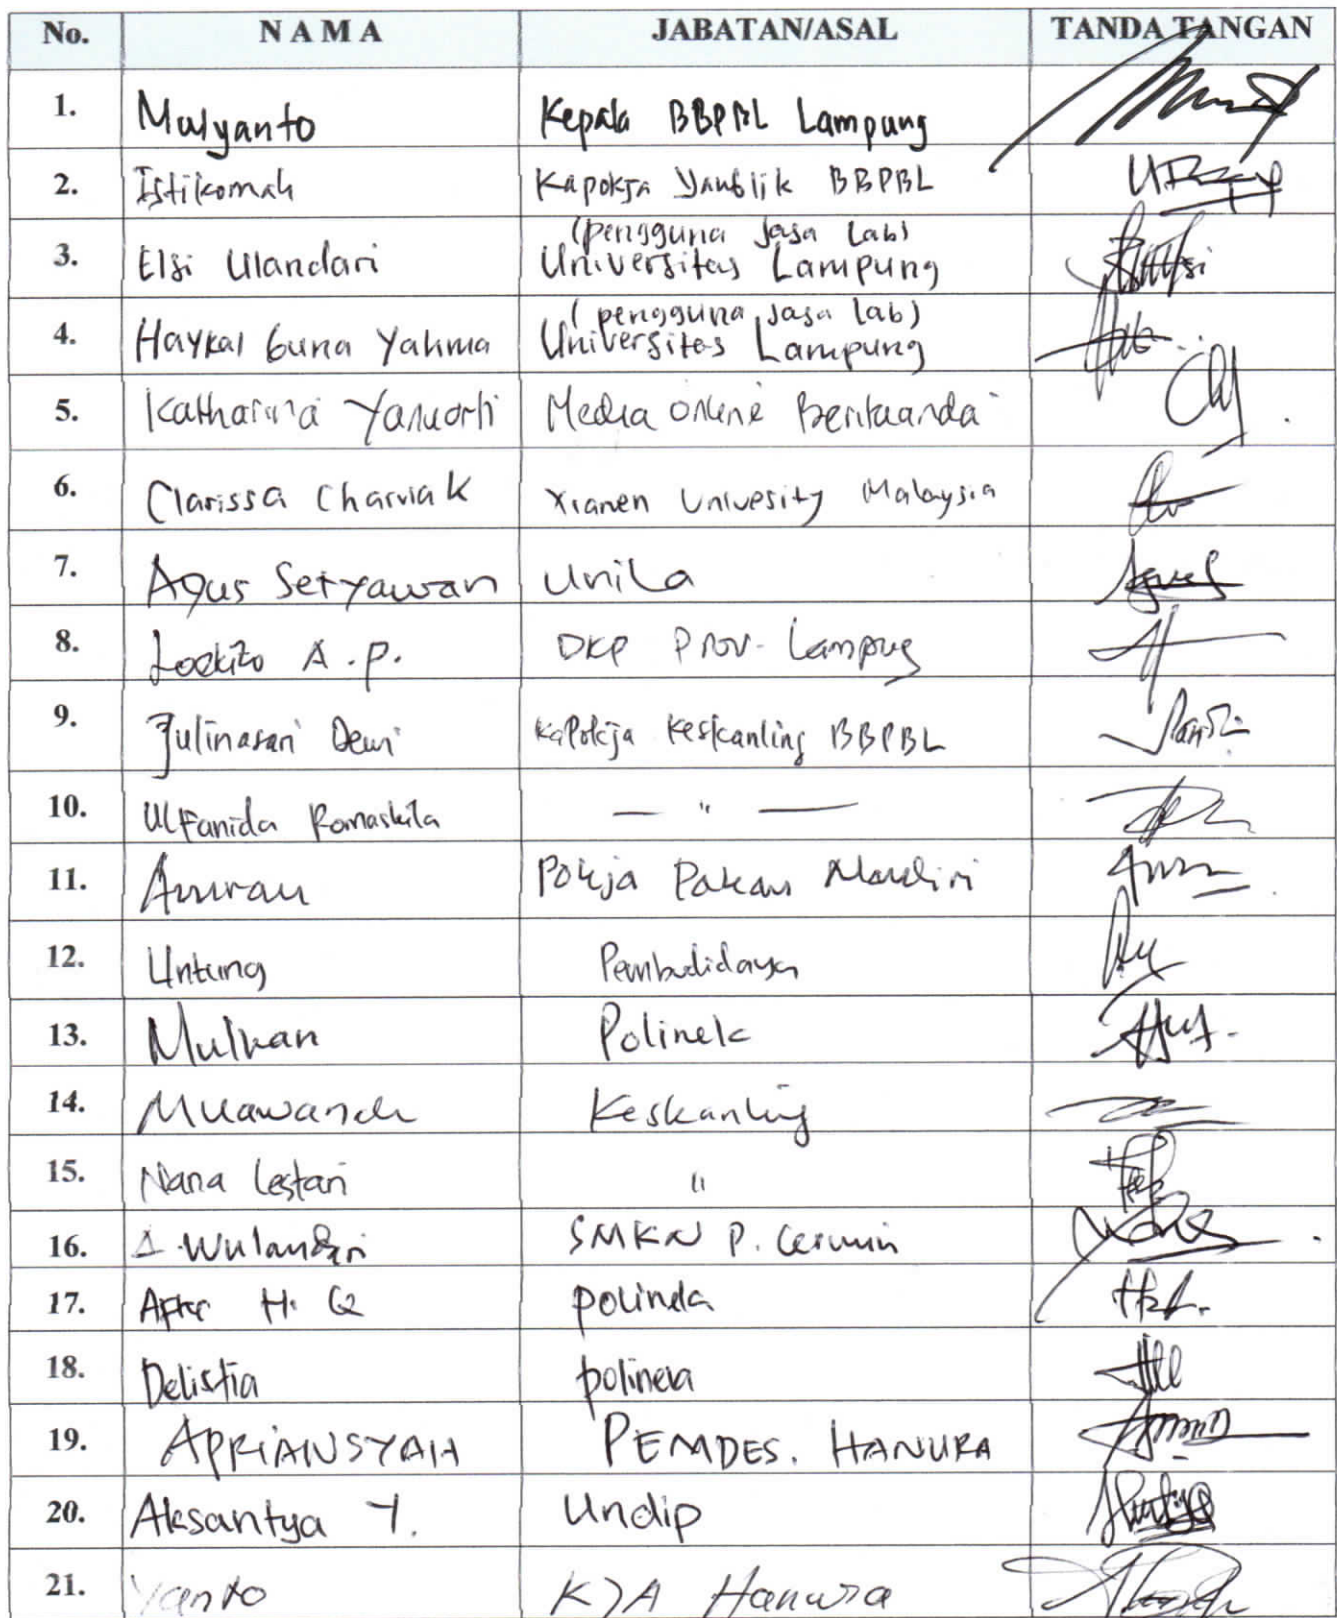 No. N A M A JABATAN/ASAL TANDA TANGAN
1. Mulyanto Kepala BBPBL Lampung
2. Istikomah Kapokja Yanblik BBPBL
3. Elsi Ulandari (pengguna Jasa Lab)
Universitas Lampung
4. Haykal Guna Yahma (pengguna Jasa Lab)
Universitas Lampung
5. Katharina Yanuarti Media Online Beritaanda
6. Clarissa Charviak Xiamen Univesity Malaysia
7. Agus Setyawan Unila
8. A.P. DKP Prov. Lampung
9. Julinasari Dewi Kapokja Keskanling BBPBL
10. Ulfanida — " —
11. Amran Pokja Pakan Mandiri
12. Untung Pembudidaya
13. Mulkan Polinela
14. Muawanah Keskanling
15. Nana Lestari "
16. Wulandari SMKN P. Cermin
17. H. Q Polinela
18. Delistia polinela
19. APRIANSYAH PEMDES. HANURA
20. Aksantya Y. Undip
21. Yanto KJA Hanura